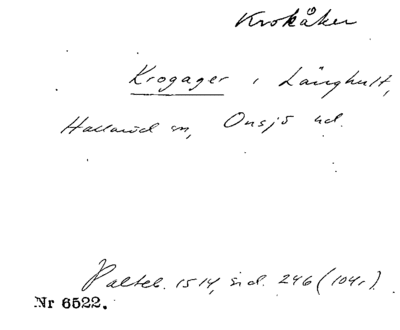 Krokåker
Krogager i Långhult,
Hallaröd sn, Onsjö hd.
Palteb. 1514, sid. 246 (104r)
Nr 6522.